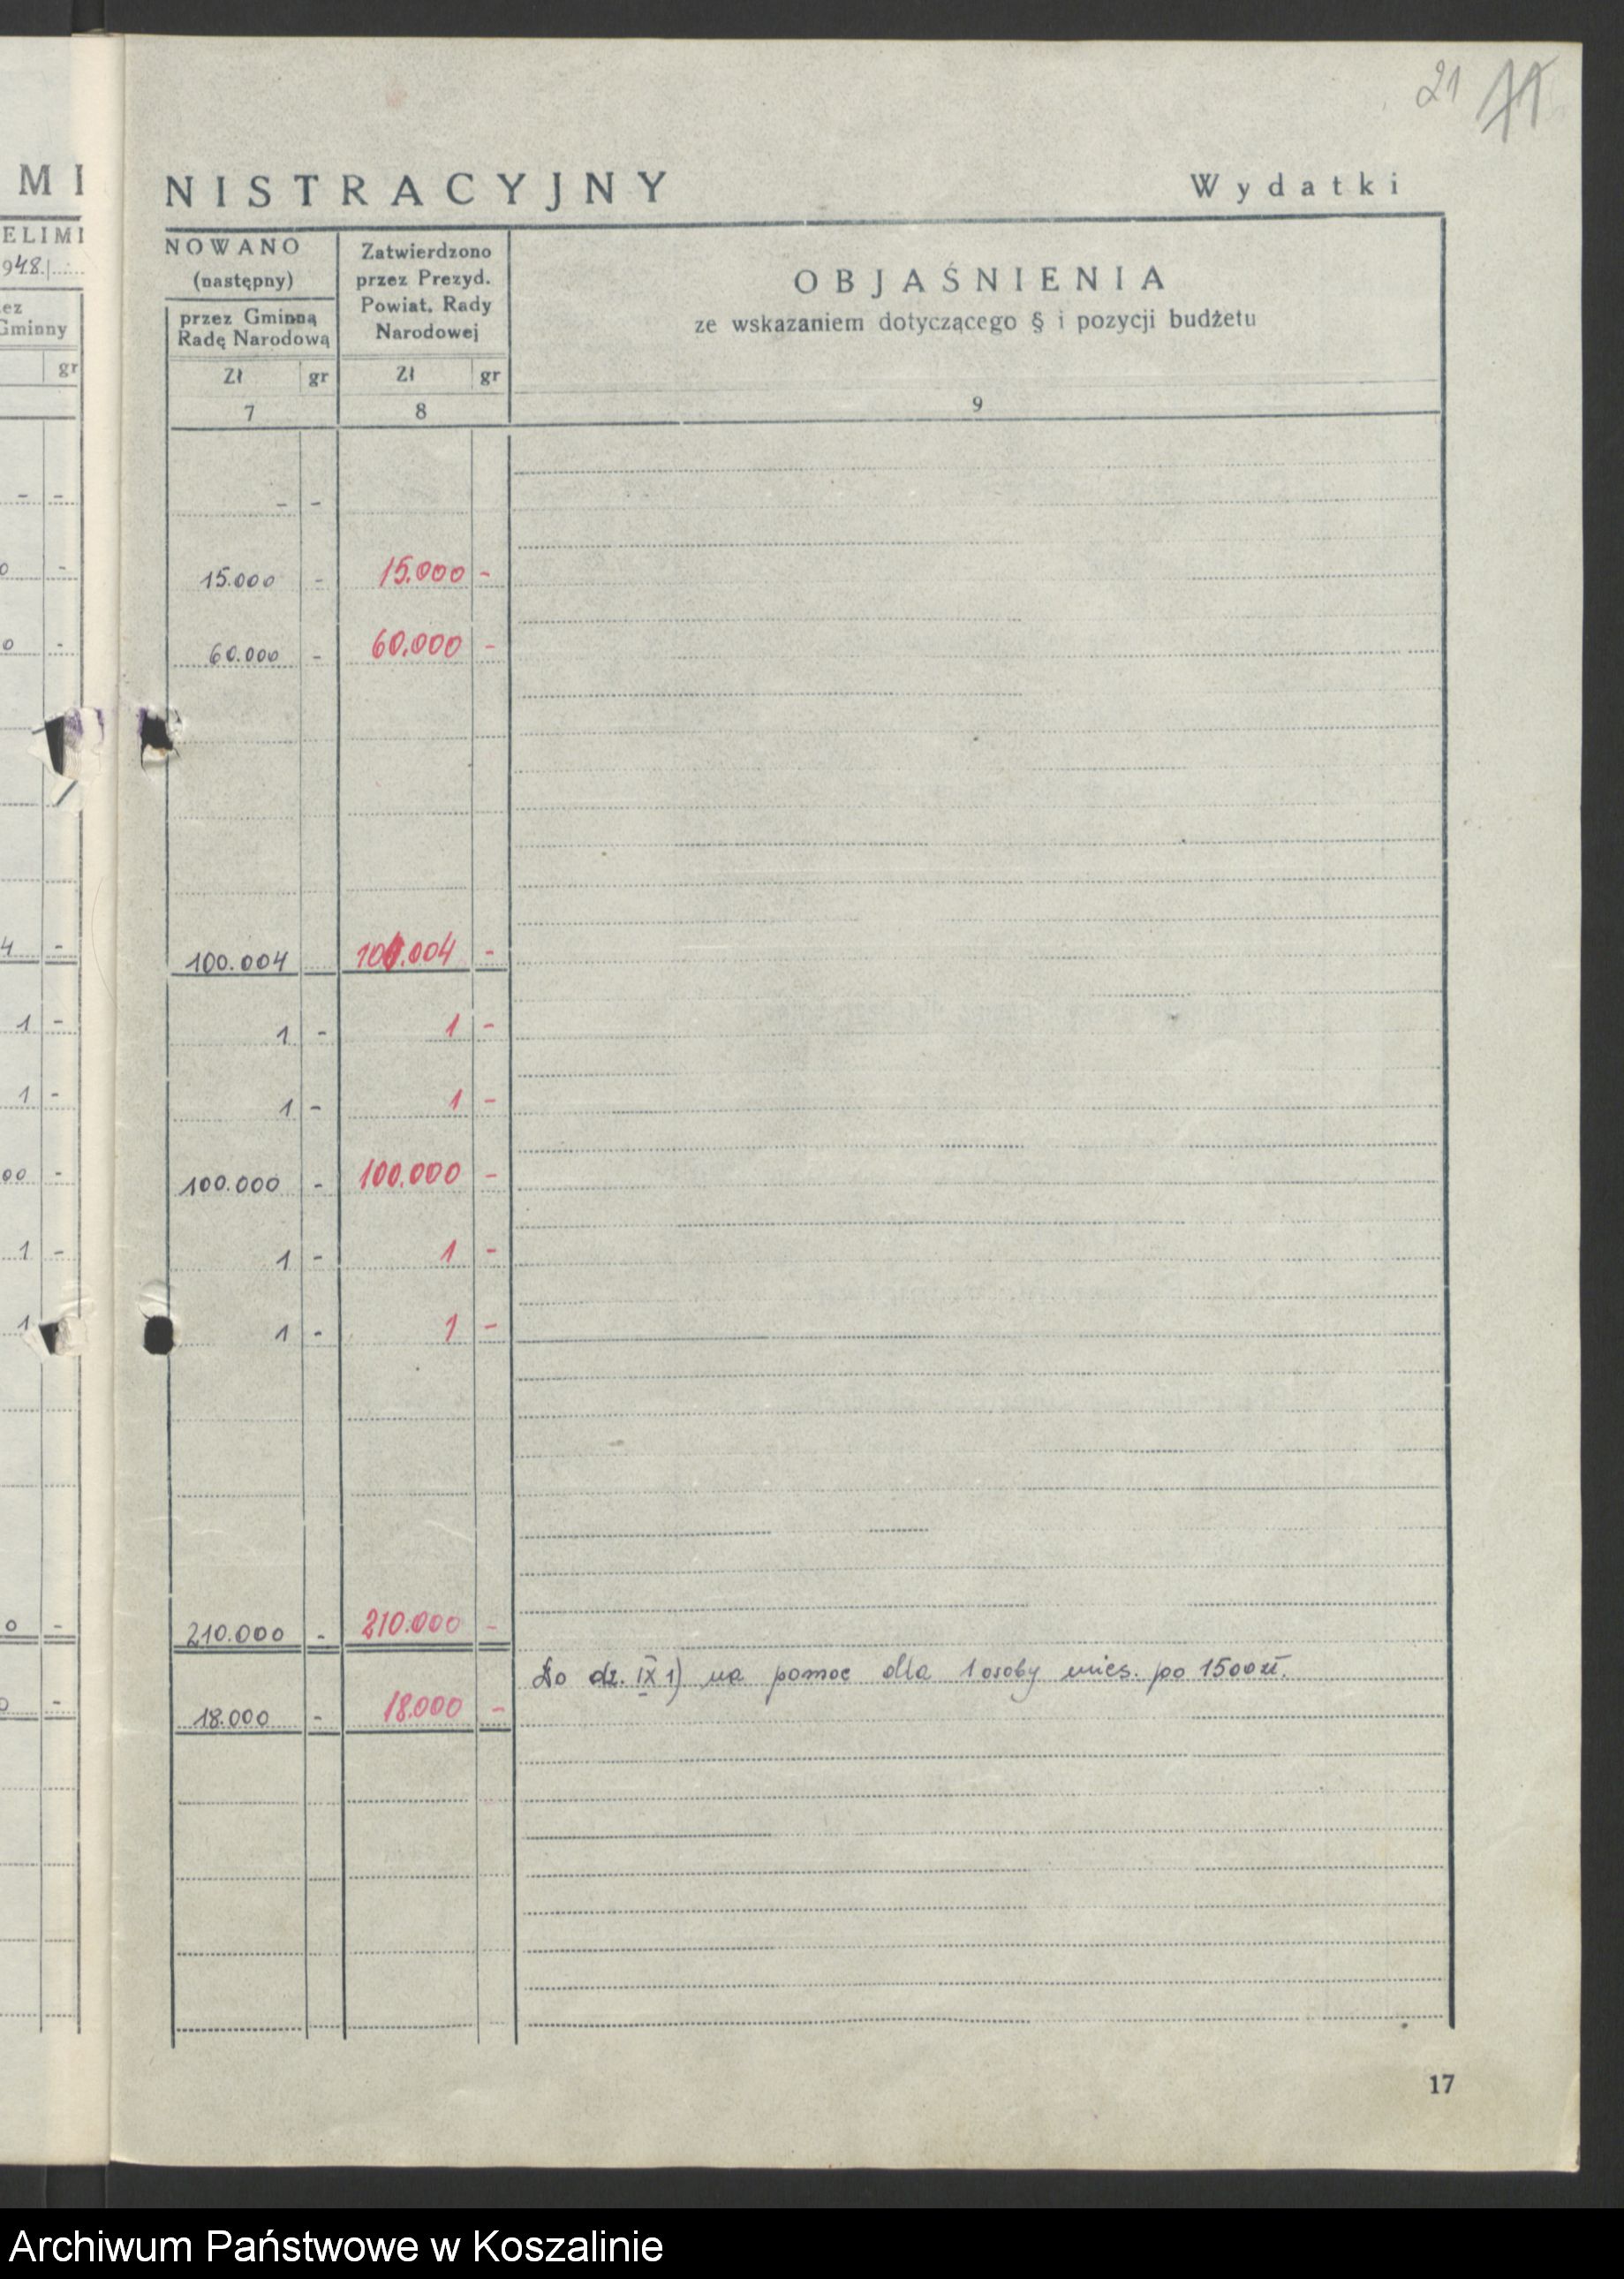 21
M I
N I S T R A C Y J N Y
W y d a t k i
ELIMI
948.
Gminny
gr
NOWANO
(następny)
przez Gminną
Radę Narodową
Zł gr
7
Zatwierdzono
przez Prezyd.
Powiat. Rady
Narodowej
Zł gr
8
OBJAŚNIENIA
ze wskazaniem dotyczącego § i pozycji budżetu
9
- -
- -
0 - 15.000 - 15.000 -
0 - 60.000 - 60.000 -
4 - 100.004 100.004 -
1 - 1 - 1 -
1 - 1 - 1 -
00 - 100.000 - 100.000 -
1 - 1 - 1 -
1 1 - 1 -
0 - 210.000 - 210.000 -
Do dz. IX 1) na pomoc dla 1 osoby mies. po 1500 zł.
0 - 18.000 - 18.000 -
17
Archiwum Państwowe w Koszalinie